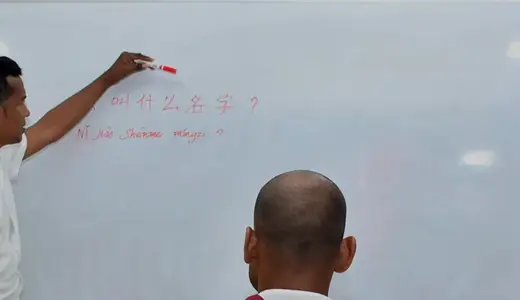 叫什么名字?
Nǐ jiào shénme míngzi?